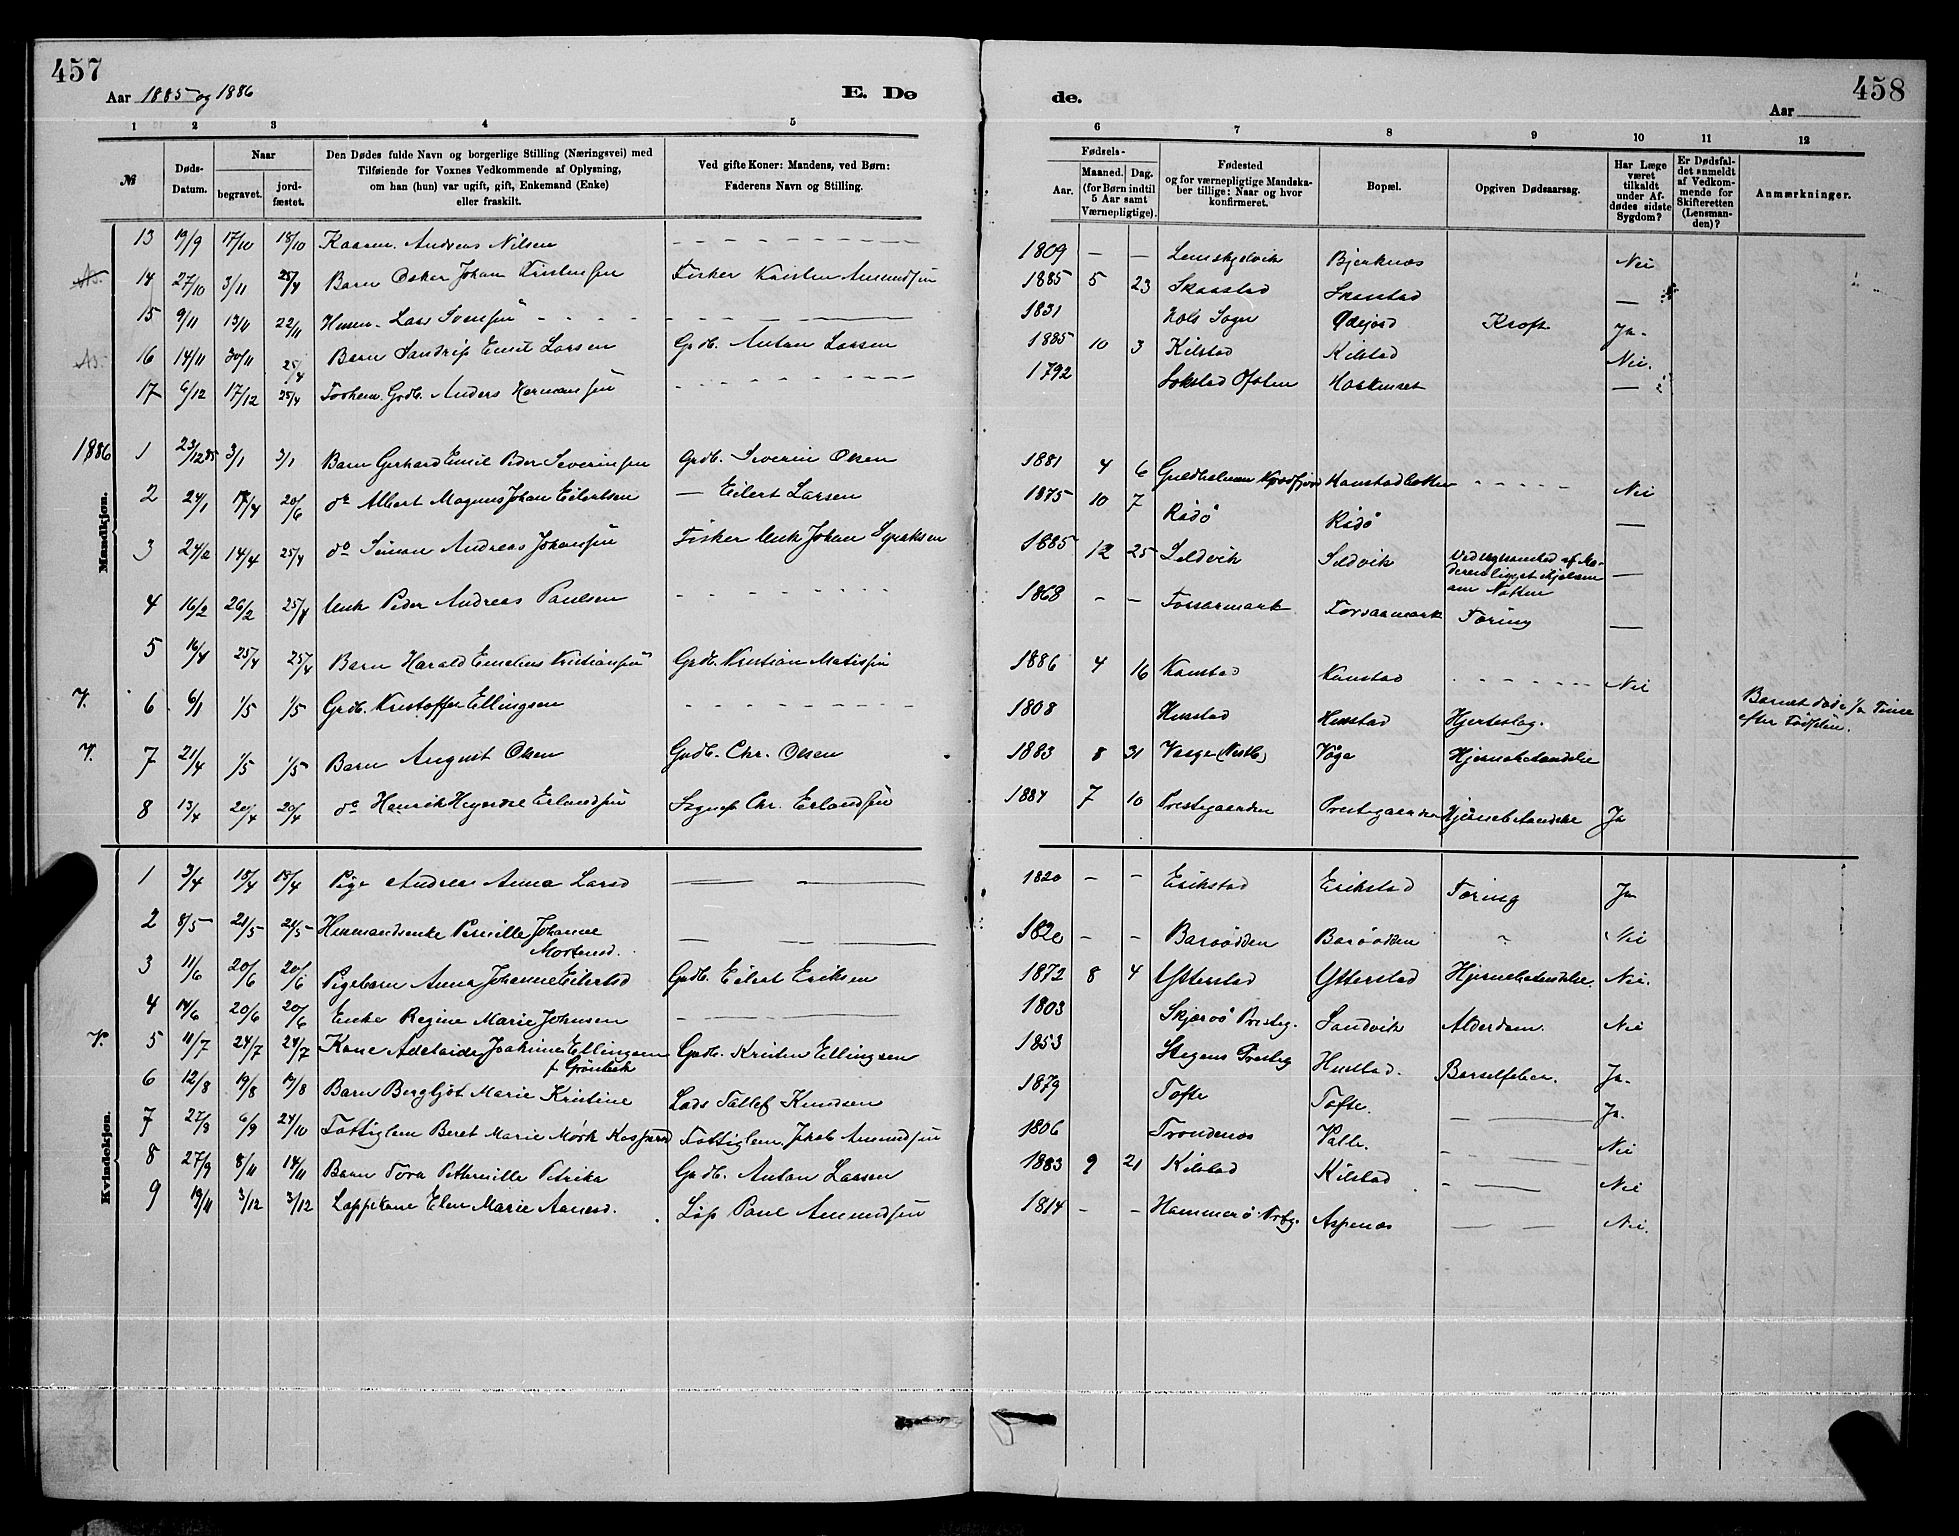 457
Aar 1885 og 1886
E. Dø
de.
Aar
458
1 2 3 4 5
6 7 8 9 10 11 12
№
Døds-
Datum.
Naar
begravet.
jord-
fæstet.
Den Dødes fulde Navn og borgerlige Stilling (Næringsvei) med
Tilføiende for Voxnes Vedkommende af Oplysning,
om han (hun) var ugift, gift, Enkemand (Enke)
eller fraskilt.
Ved gifte Koner: Mandens, ved Børn:
Faderens Navn og Stilling.
Fødsels-
Aar.
Maaned. Dag.
(for Børn indtil
5 Aar samt
Værnepligtige).
Fødested
og for værnepligtige Mandska-
ber tillige: Naar og hvor
konfirmeret.
Bopæl.
Opgiven Dødsaarsag.
Har Læge
været
tilkaldt
under Af-
dødes sidste
Sygdom?
Er Dødsfal-
det anmeldt
af Vedkom-
mende for
Skifteretten
(Lensman-
den)?
Anmærkninger.
13 19/9 17/10 18/10 Kaarm. Andreas Nilsen 1809 — — Bjerknes Nei
14 27/10 3/11 25/4 Barn Oskar Johan Kristensen Fisker Kristen Amundsen 1885 5 23 Skaastad Skaastad —
15 9/11 13/11 22/11 Husm. Lars Svensen 1831 Hols Sogn Ødejord Kræft Ja.
16 14/11 30/11 25/4 Barn Emil Larsen Grdb. Anton Larsen 1885 10 3 Kilstad Kilstad Nei.
17 6/12 17/12 25/4 Grdb. Anders Hermansen 1792 Ofoten —
1886
Mandkjøn.
1 23/12 85 3/1 3/1 Barn Gerhard Emil Peder Severinsen Grdb. Severin Olsen 1881 4 6 Nei
2 24/1 17/4 20/6 do Albert Magnus Johan Eilertsen — Eilert Larsen 1875 10 7 Rødø Rødø —
3 24/2 14/4 25/4 do Simon Andreas Johansen Fisker Unk Johan 1885 12 25 Seldvik Seldvik Ved
om Natten —
4 16/2 26/2 25/4 Unk Peder Andreas Paulsen 1868 — — Forsaamark Tæring —
5 16/4 25/4 25/4 Barn Harald Emelius Kristiansen Grdb. Kristian 1886 4 16 Kanstad Kanstad Nei
Barnet døde 1/2 Time
efter Fødselen.
V. 6 6/1 1/5 1/5 Grdb. Kristoffer Ellingsen 1808 Husstad Husstad Hjerteslag.
V. 7 21/4 1/5 1/5 Barn August Olsen Grdb. Chr. Olsen 1883 8 31 Vaage Våge Hjernebetændelse
8 13/4 20/4 20/4 do Henrik Erlandsen Sognep. Chr. Erlandsen 1884 7 10 Prestegaarden Prestegaarden Hjernebetændelse Ja
Kvindekjøn.
1 3/4 18/4 18/4 Pige Andrea Anna Larsd 1820 — — Erikstad Erikstad Tæring Ja
2 8/5 21/5 21/5 Husmandsenke Pernille Johanne
Mortensd. 1820 — — Barøodden Barøodden Nei
3 11/6 20/6 20/6 Pigebarn Anna Johanne Eilertsd Grdb. Eilert Eriksen 1872 8 4 Ytterstad Ytterstad Hjernebetændelse. Nei.
4 14/6 20/6 20/6 Enke Regine Marie Johnsen 1803 Skjærvø Presteg. Sandvik Alderdom. Nei
V. 5 11/7 24/7 24/7 Kone Adelaide Joakime Ellingsen
f Grönbech Grdb. Kristen Ellingsen 1853 Stegens Presteg Husstad. Barselfeber. Ja.
6 12/8 19/8 19/8 Barn Bergljot Marie Kristine Lods Tallef Knudsen 1879 Tofte Tofte. Ja.
7 27/8 6/9 24/10 Fattiglem Beret Marie Mörk Fattiglem Jakob Amundsen 1806 Trondenes Valle. Nei
8 27/9 8/11 14/11 Barn Tora Petternille Petrika Grdb. Anton Larsen 1883 9 21 Kilstad Kilstad Nei
9 19/11 3/12 3/12 Lappekone Elen Marie Lap Paul Amundsen 1814 — — Hammerø Prtg. Aspenes Nei.